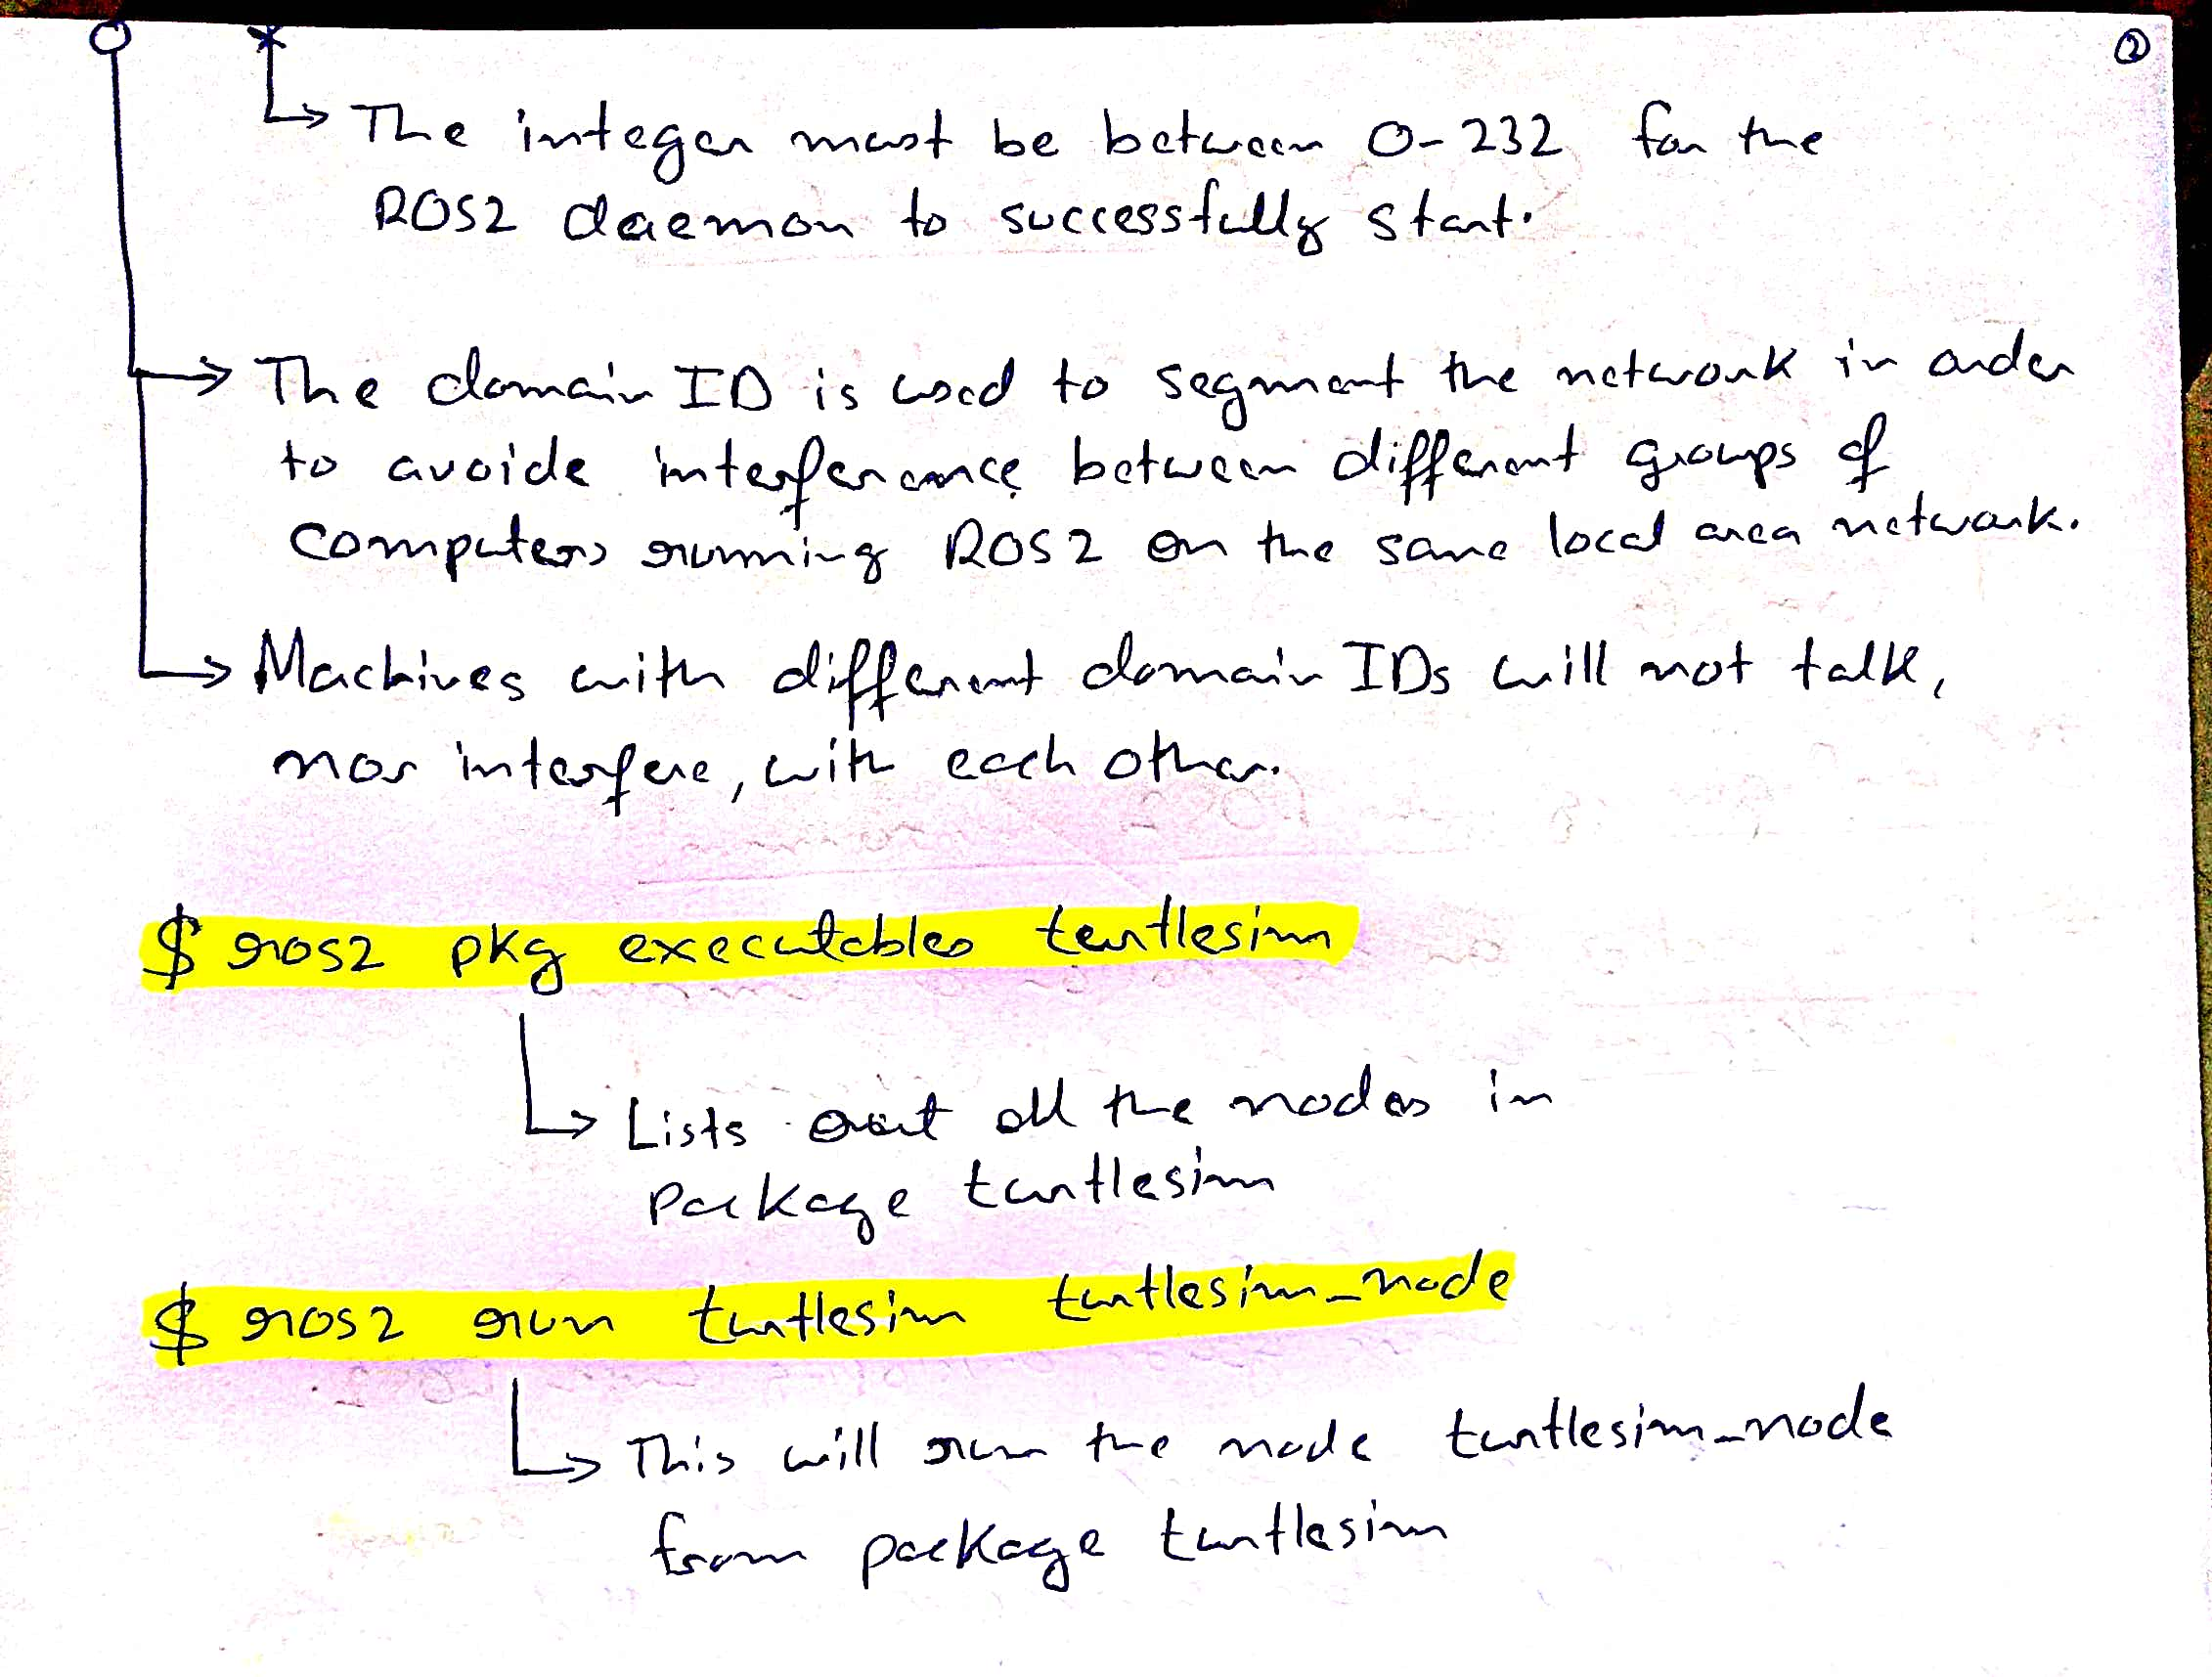 ②
The integer must be between 0-232 for the
ROS2 daemon to successfully start.
The domain ID is used to segment the network in order
to avoide interference between different groups of
computers running ROS2 on the same local area network.
Machines with different domain IDs will not talk,
nor interfere, with each other.
$ ros2 pkg executables turtlesim
Lists out all the nodes in
package turtlesim
$ ros2 run turtlesim turtlesim_node
This will run the node turtlesim_node
from package turtlesim